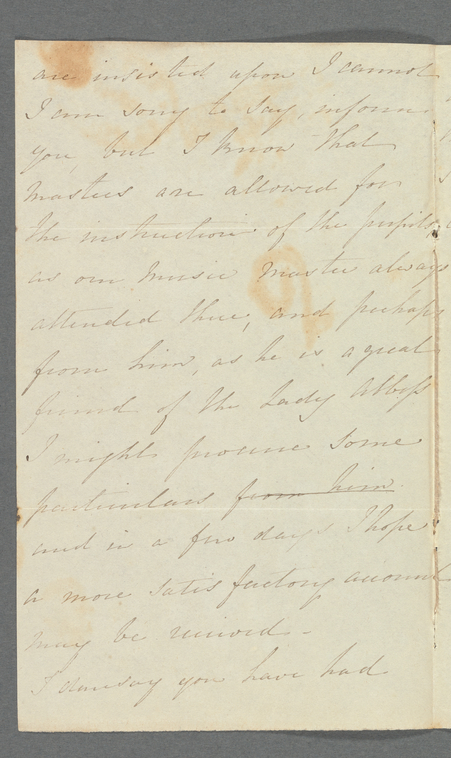 are insisted upon I cannot
I am sorry to say, inform
you, but I know that
Masters are allowed for
the instruction of the pupils,
as our Music Master always
attended there, and perhaps
from him, as he is a great
friend of the Lady Abbess
I might procure some
particulars from him
and in a few days I hope
a more satisfactory account
may be received –
I daresay you have had